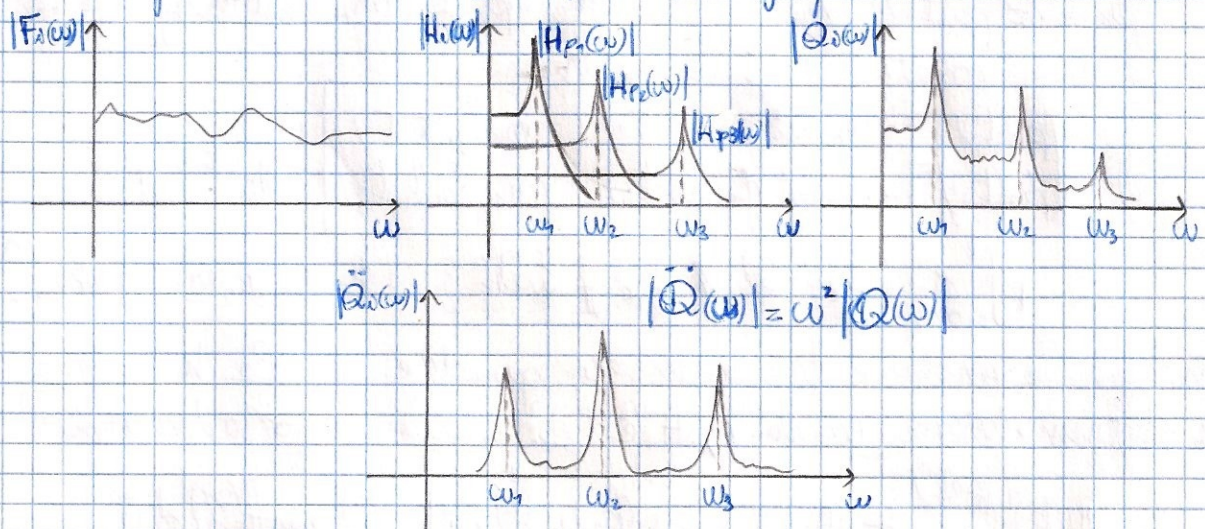 |Fi(ω)|
|Hi(ω)| |Hp1(ω)|
|Hp2(ω)|
|Hp3(ω)|
|Qi(ω)|
ω
ω1 ω2 ω3 ω
ω1 ω2 ω3 ω
|Q̈i(ω)|
|Q̈(ω)| = ω²|Q(ω)|
ω1 ω2 ω3 ω